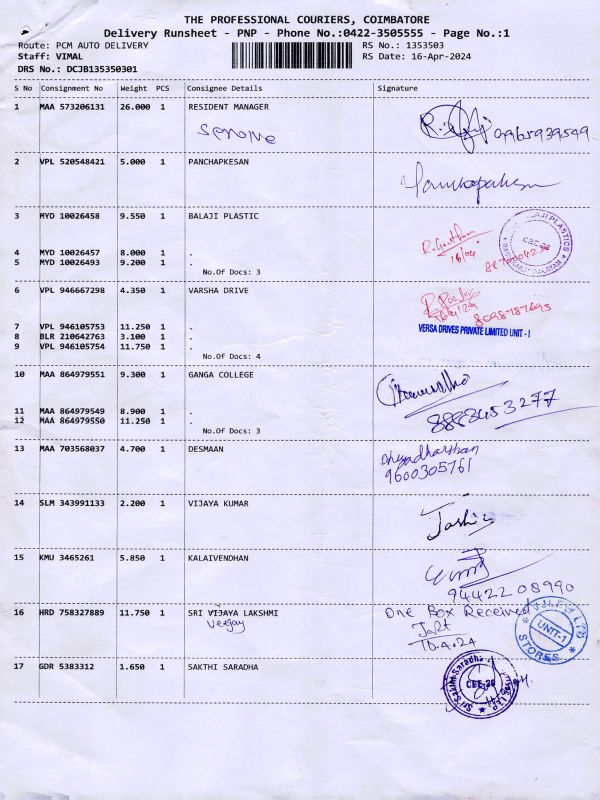 THE PROFESSIONAL COURIERS, COIMBATORE
Delivery Runsheet - PNP - Phone No.:0422-3505555 - Page No.:1
Route: PCM AUTO DELIVERY RS No.: 1353503
Staff: VIMAL RS Date: 16-Apr-2024
DRS No.: DCJB135350301
S No Consignment No Weight PCS Consignee Details Signature
1 MAA 573206131 26.000 1 RESIDENT MANAGER
09965939549
2 VPL 520548421 5.000 1 PANCHAPKESAN
3 MYD 10026458 9.550 1 BALAJI PLASTIC
4 MYD 10026457 8.000 1 .
5 MYD 10026493 9.200 1 .
No.Of Docs: 3
16/04
6 VPL 946667298 4.350 1 VARSHA DRIVE
8098787695
VERSA DRIVES PRIVATE LIMITED UNIT - I
7 VPL 946105753 11.250 1 .
8 BLR 210642763 3.100 1 .
9 VPL 946105754 11.750 1 .
No.Of Docs: 4
10 MAA 864979551 9.300 1 GANGA COLLEGE
8883453277
11 MAA 864979549 8.900 1 .
12 MAA 864979550 11.250 1 .
No.Of Docs: 3
13 MAA 703568037 4.700 1 DESMAAN
9600305761
14 SLM 343991133 2.200 1 VIJAYA KUMAR
15 KMU 3465261 5.850 1 KALAIVENDHAN
9442208990
16 HRD 758327889 11.750 1 SRI VIJAYA LAKSHMI
Veejay
One Box Received
16.4.24
UNIT-1
STORES
17 GDR 5383312 1.650 1 SAKTHI SARADHA